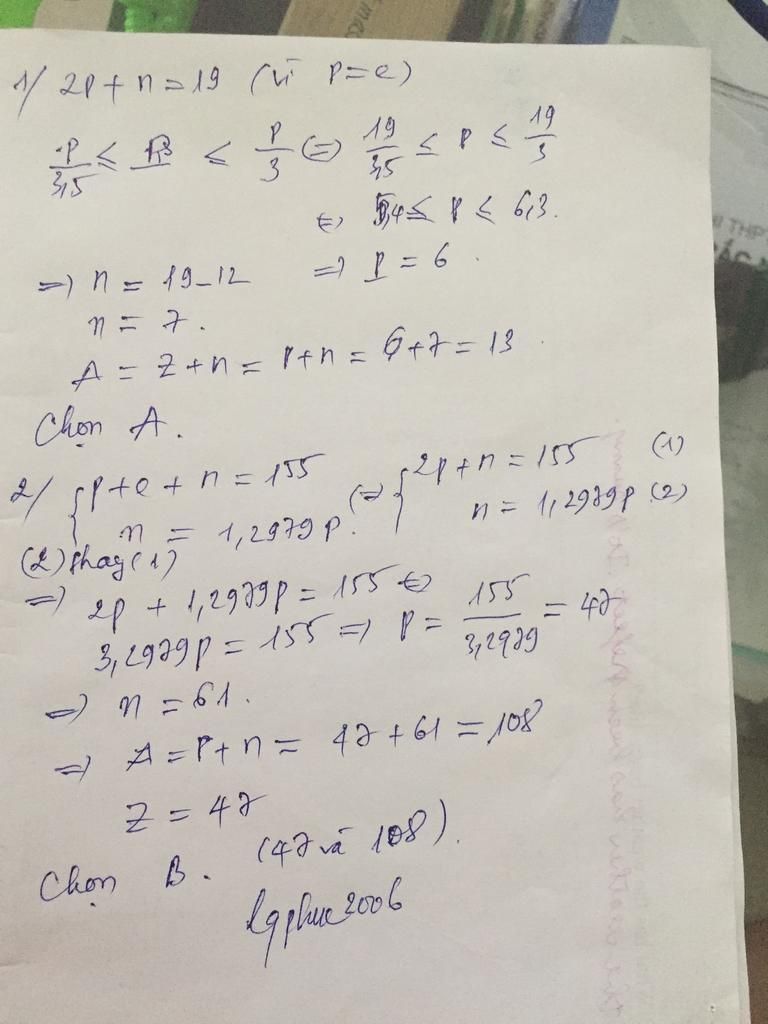 1/ 2p + n = 19 (vì p = e)
P/3,5 ≤ P ≤ P/3 (=) 19/3,5 ≤ P ≤ 19/3
⇔ 5,4 ≤ P ≤ 6,3.
=) n = 19-12 =) P = 6.
n = 7.
A = Z + n = P + n = 6 + 7 = 13.
Chọn A.
2/ { p + e + n = 155 (=) { 2p + n = 155 (1)
n = 1,2979 P. n = 1,2979p (2)
(2) thay (1)
=) 2p + 1,2979p = 155 ⇔
3,2979p = 155 =) P = 155/3,2979 = 47
=) n = 61.
=) A = P + n = 47 + 61 = 108
Z = 47
Chọn B. (47 và 108).
lgphuc2006